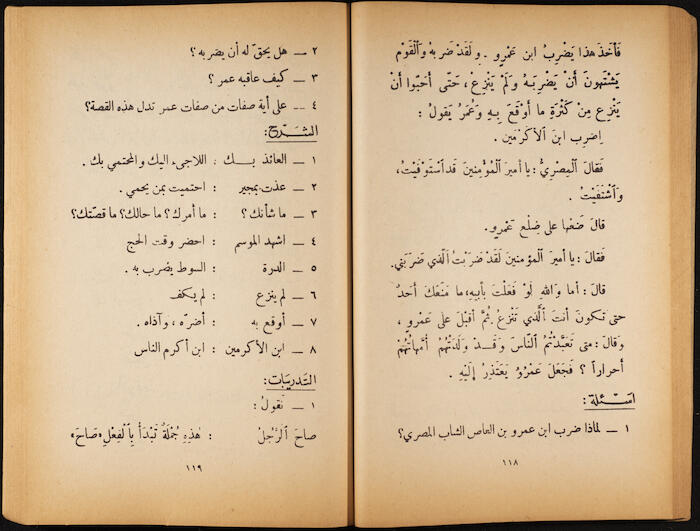 فَأَخَذَ هذا يَضْرِبُ ابن عَمْرٍو . وَلَقَدْ ضَرَبَهُ وَالْقَوْم
يَشْتَهونَ أَنْ يَضْرِبَهُ وَلَمْ يَنْزِعْ ، حَتّى أَحَبّوا أَنْ
يَنْزِعَ مِنْ كَثْرَةِ ما أَوْقَعَ بِهِ وَعُمَرُ يَقولُ :
اِضرِب ابنَ الأكْرَمين .
فَقالَ المِصرِيُّ : يا أميرَ المُؤمِنينَ قَد اسْتَوفَيْتُ ،
وَاشْتَفَيْتُ .
قالَ ضَعْها على ضِلْعِ عَمْرٍو .
فَقالَ : يا أميرَ المؤمِنينَ لَقَدْ ضَرَبْتُ الَّذي ضَرَبَني .
قالَ : أما وَاللهِ لَوْ فَعَلْتَ بأبيهِ ، ما مَنَعَكَ أحَدٌ
حتى تكونَ أنتَ الَّذي تَنْزِعُ ثُمَّ أقبَلَ على عَمْرٍو ،
وقالَ : متى تَعَبَّدْتُمُ النّاسَ وَقَدْ وَلَدَتْهُمْ أُمَّهاتُهُمْ
أحراراً ؟ فَجَعَلَ عَمْرٌو يَعْتَذِرُ إلَيْهِ .
اسئلة :
١ – لماذا ضرب ابن عمرو بن العاص الشاب المصري ؟
١١٨
٢ – هل يحقّ له أن يضربه ؟
٣ – كيف عاقبه عمر ؟
٤ – على أية صفات من صفات عمر تدل هذه القصة ؟
الشرح :
١ – العائذ بك : اللاجىء اليك والمحتمي بك .
٢ – عذت بمجير : احتميت بمن يحمي .
٣ – ما شأنك ؟ : ما أمرك ؟ ما حالك ؟ ما قصّتك ؟
٤ – اشهد الموسم : احضر وقت الحج
٥ – الدرة : السوط يضرب به .
٦ – لم ينزع : لم يكف
٧ – أوقع به : أضرّه ، وآذاه .
٨ – ابن الاكرمين : ابن أكرم الناس
التدريبات :
١ – نَقولُ :
صاحَ الرَّجُلُ : هٰذِهِ جُمْلَةٌ تَبْدَأُ بِالْفِعْلِ «صَاحَ»
١١٩